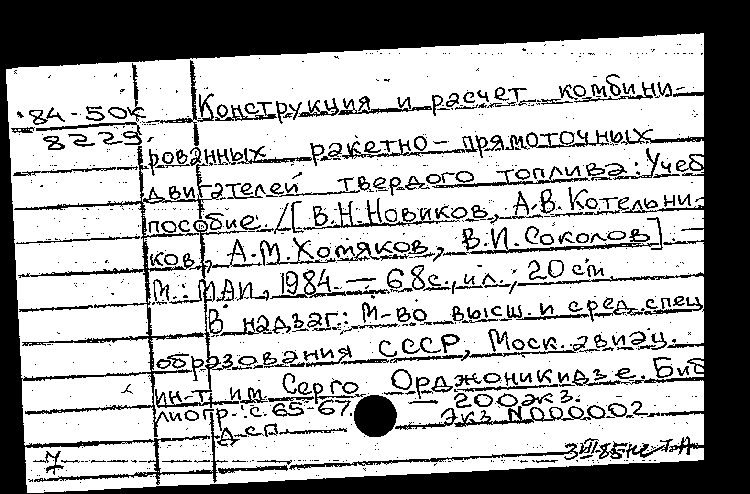 84-50К Конструкция и расчет комбини-
8229 рованных ракетно-прямоточных
двигателей твердого топлива: Учеб
пособие. /[В.Н.Новиков, А.В.Котельни-
ков, А.М.Хомяков, В.И.Соколов]. —
М.: МАИ, 1984. — 68с., ил.; 20 cm.
В надзаг.: М-во высш. и сред. спец
образования СССР, Моск. авиац.
ин-т им. Серго Орджоникидзе. Биб
лиогр.: с. 65-67. — 200экз.
Дсп. Экз N000002
7